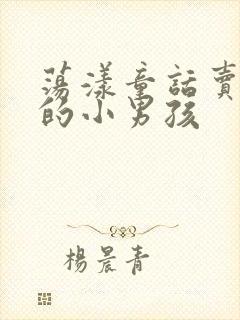 蕩漾童話賣
的小男孩
楊晨青